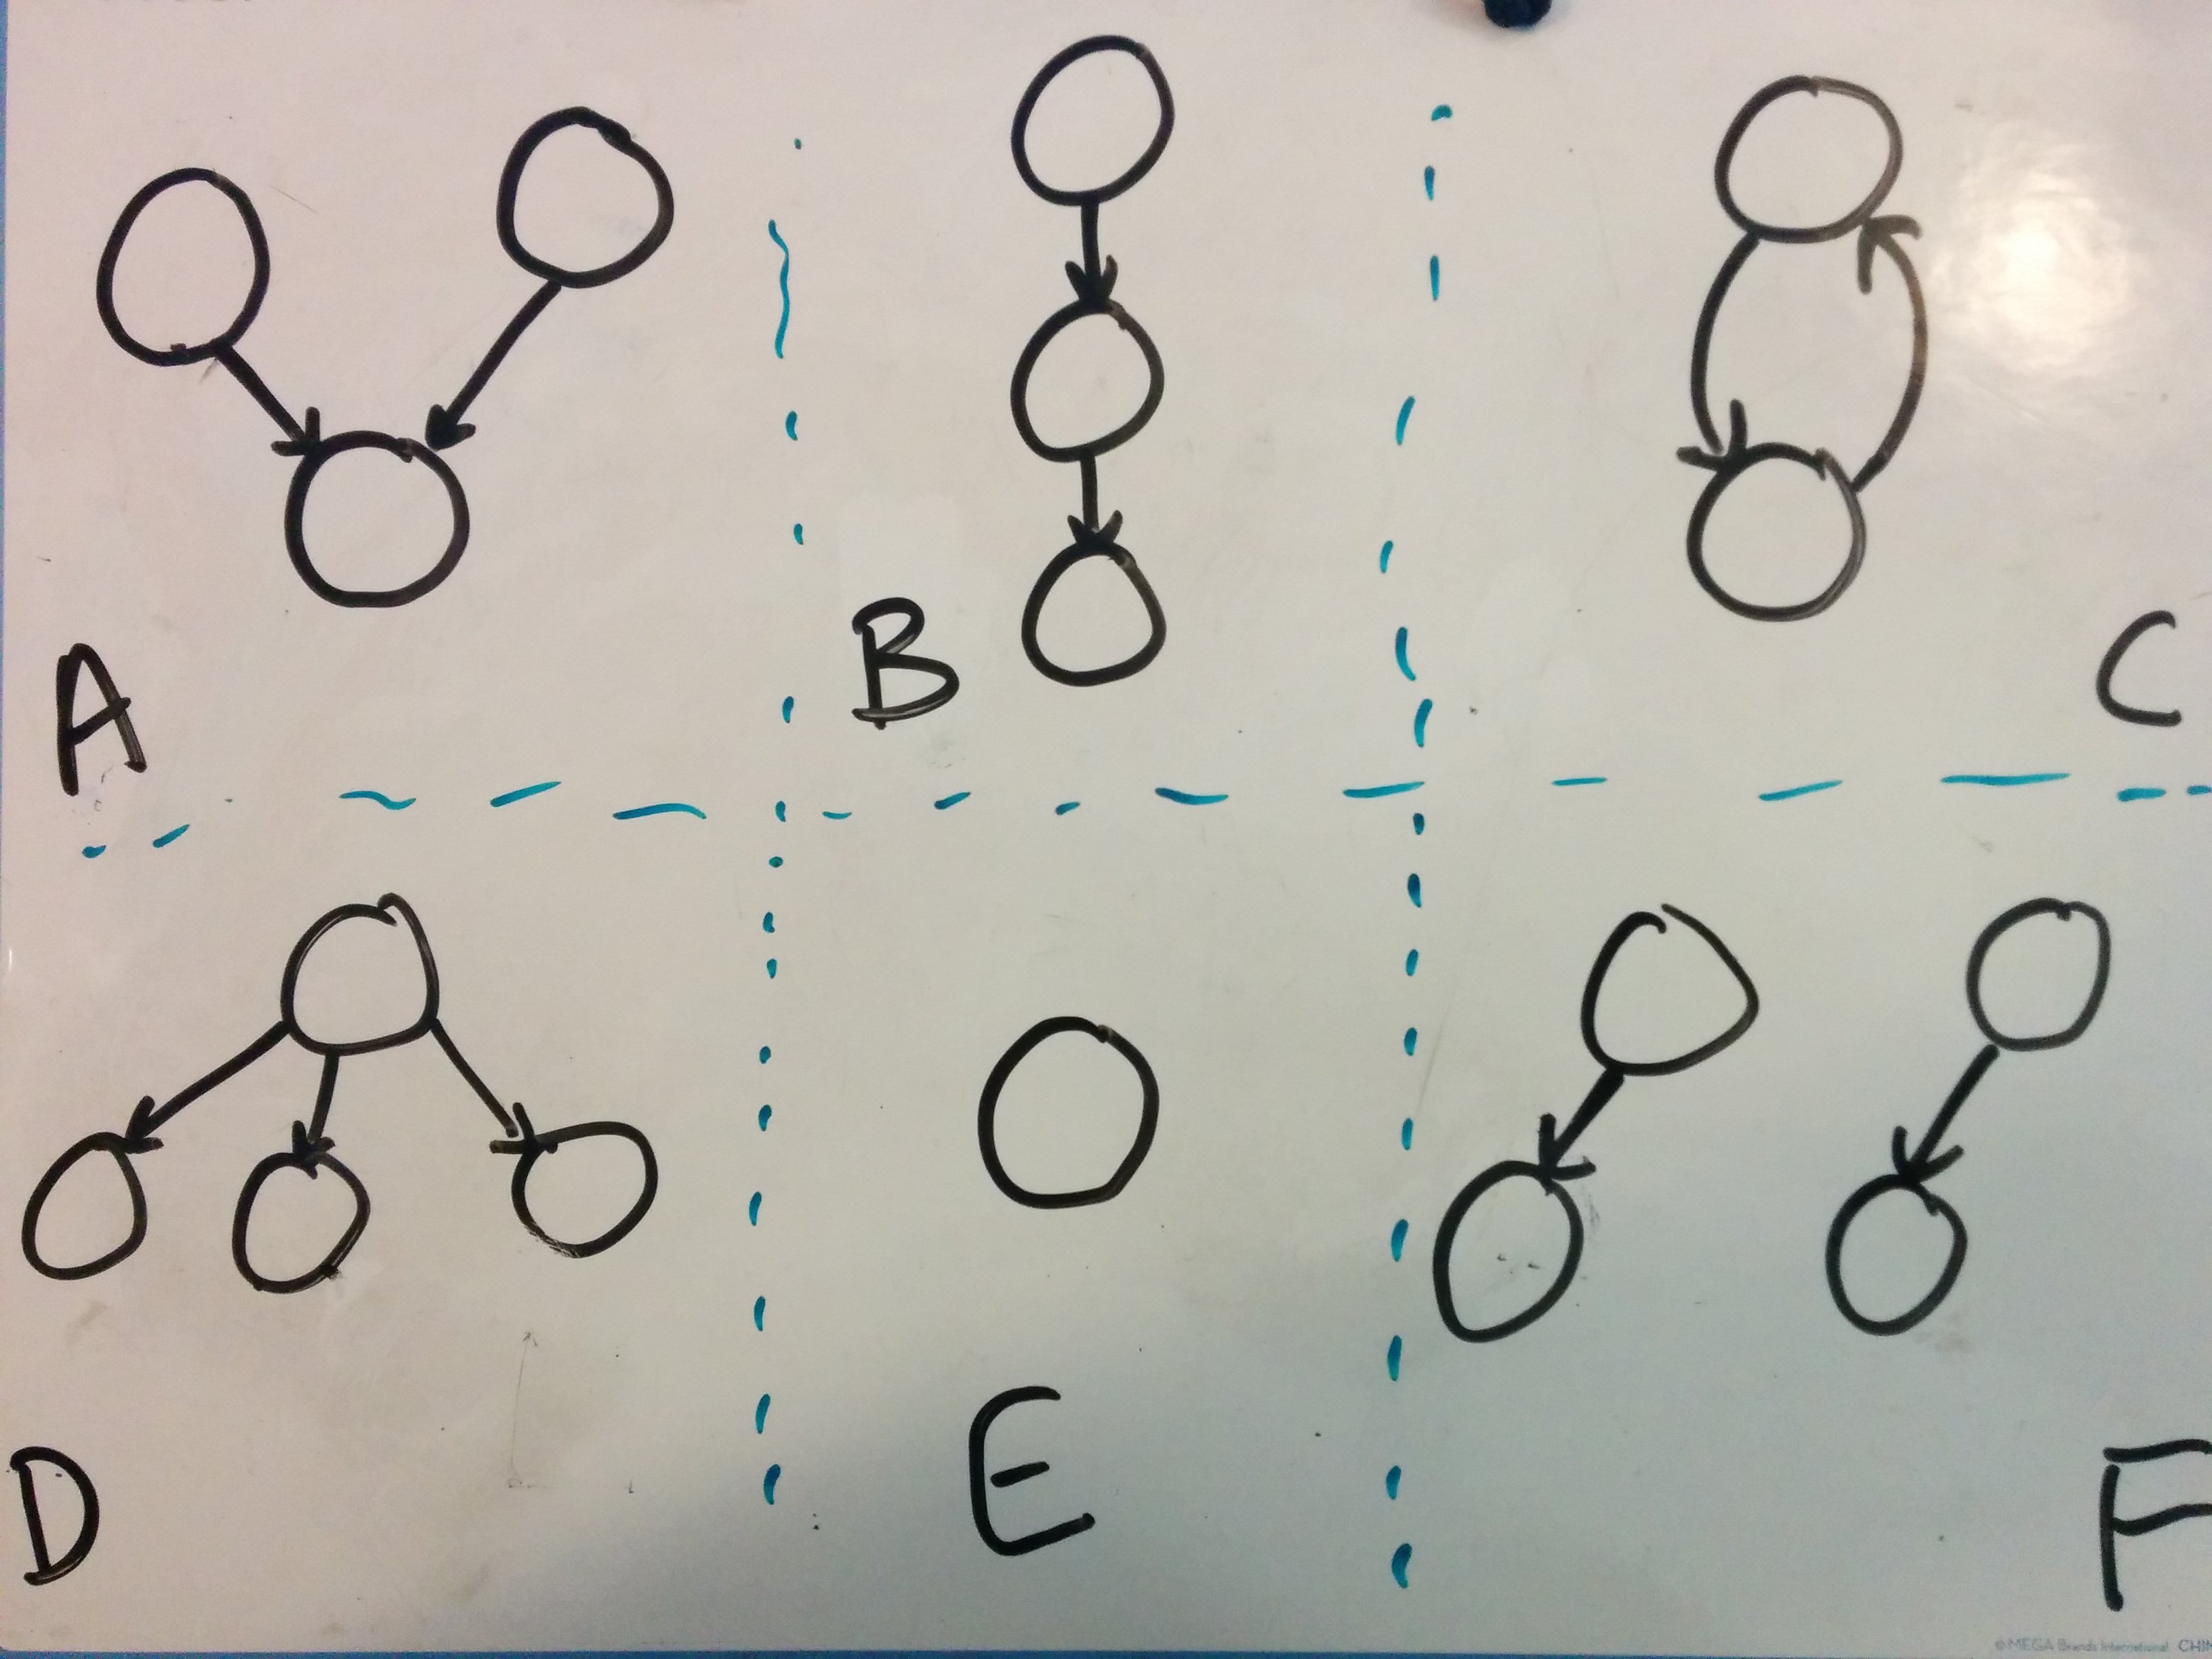 A
B
C
D
E
F
©MEGA Brands International CHIN